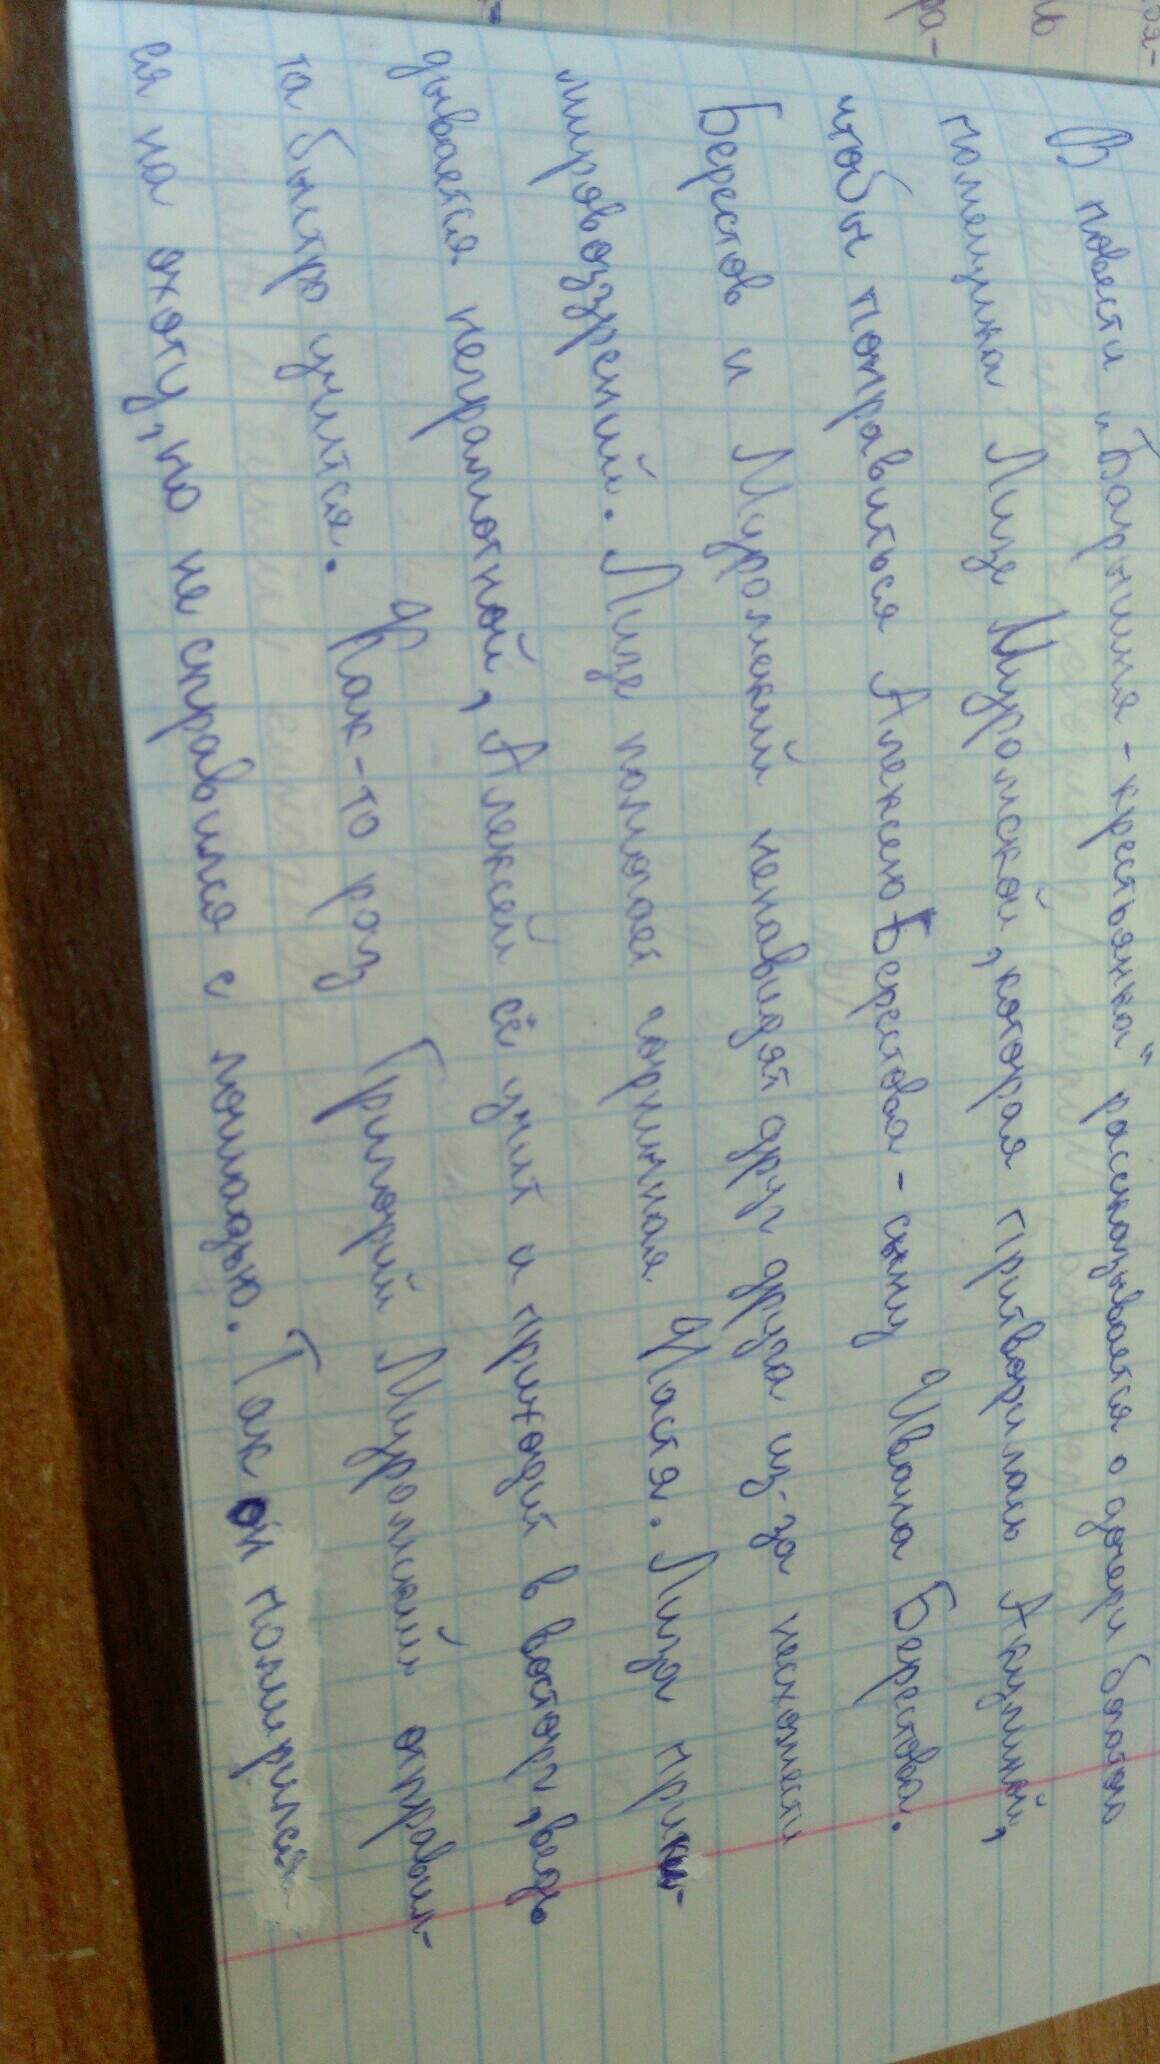 В повести „Барышня-крестьянка" рассказывается о дочери богатого
помещика Лизе Муромской, которая притворилась Акулиной,
чтобы понравиться Алексею Берестова - сыну Ивана Берестова.
Берестов и Муромский ненавидят друг друга из-за несхожести
мировоззрений. Лизе помогает горничная Настя. Лиза прики-
дывается неграмотной, Алексей её учит и приходит в восторг, ведь
та быстро учится. Как-то раз Григорий Муромский отправил-
ся на охоту, но не справился с лошадью. Так он помирился
ра-
ль